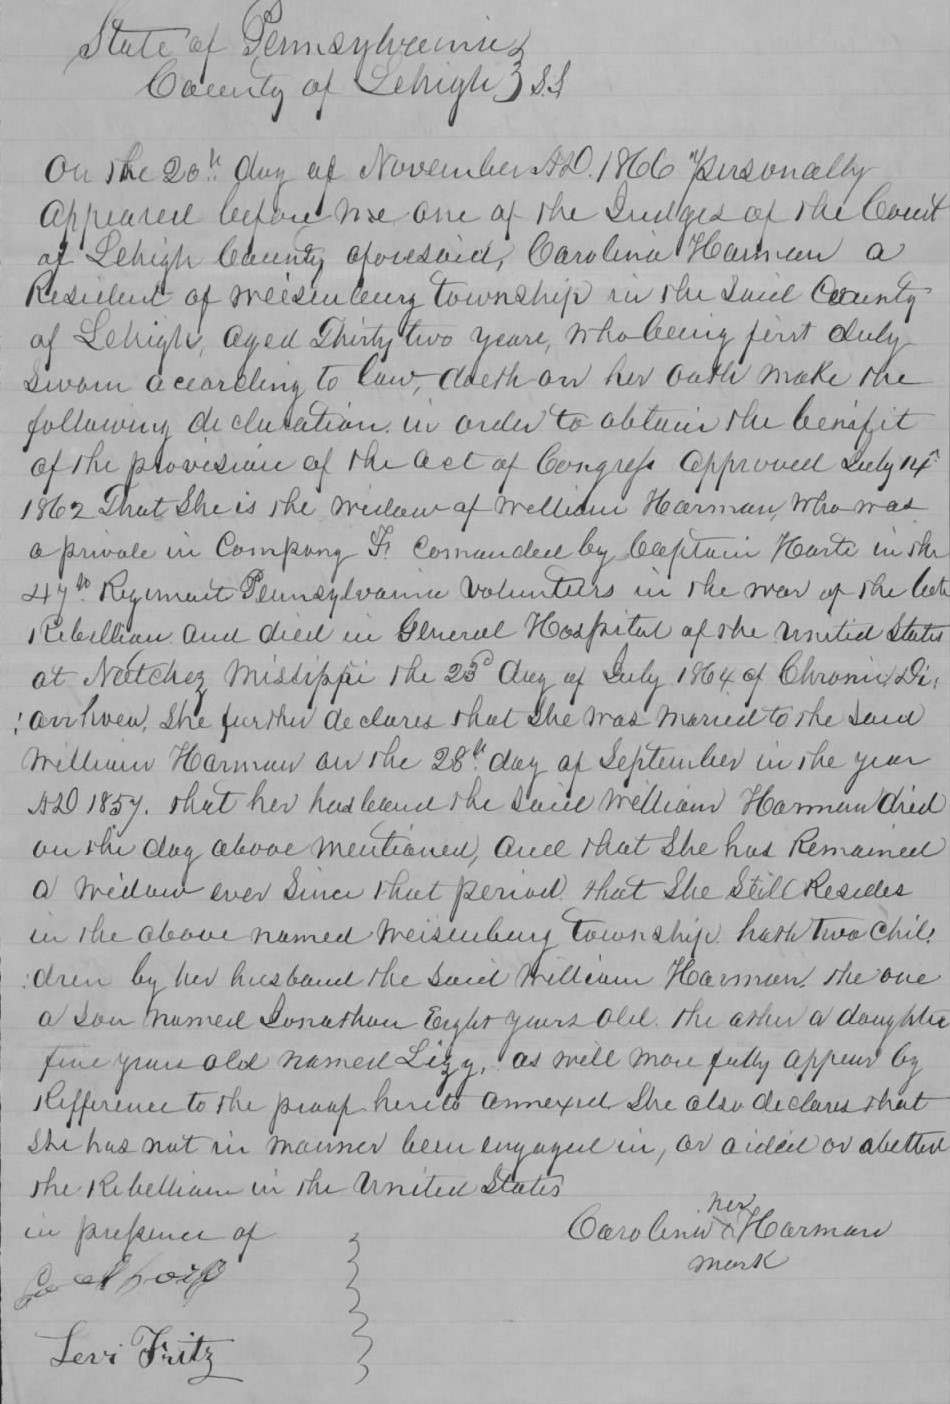 State of Pennsylvania }
County of Lehigh } S.S
On the 20th day of November AD. 1866 personally
appeared before me one of the Judges of the Court
of Lehigh County aforesaid, Carolina Harman a
Resident of Weisenburg township in the said County
of Lehigh, aged Thirty two years, who being first duly
sworn acearding to law, doeth on her oath make the
following declaration in order to obtain the benefit
of the provision of the act of Congress approved July 14th
1862 That She is the widow of William Harman, who was
a private in Company F. Comanded by Captain Harte in the
47th Regiment Pennsylvania Volunteers in the war of the late
Rebellion and died in General Hospital of the United States
at Natchez Missippi the 23d day of July 1864 of Chronic Di:
:arrhoea, She further declares that She was married to the said
William Harman on the 28th day of September in the year
AD 1857. that her husband the said William Harman died
on the day above mentioned, and that She has Remained
a widow ever Since that period that She Still Resides
in the above named Weisenburg township. hath two Chil:
:dren by her husband the said William Harman. the one
a Son named Jonathan Eight years old. the other a daughter
five years old named Lizy, as will more fully appear by
Refference to the proof hereto annexed She also declares that
She has not in manner been engaged in, or aided or abetted
the Rebellion in the United States
in presence of
her
Carolina X Harman
mark
Levi Fritz